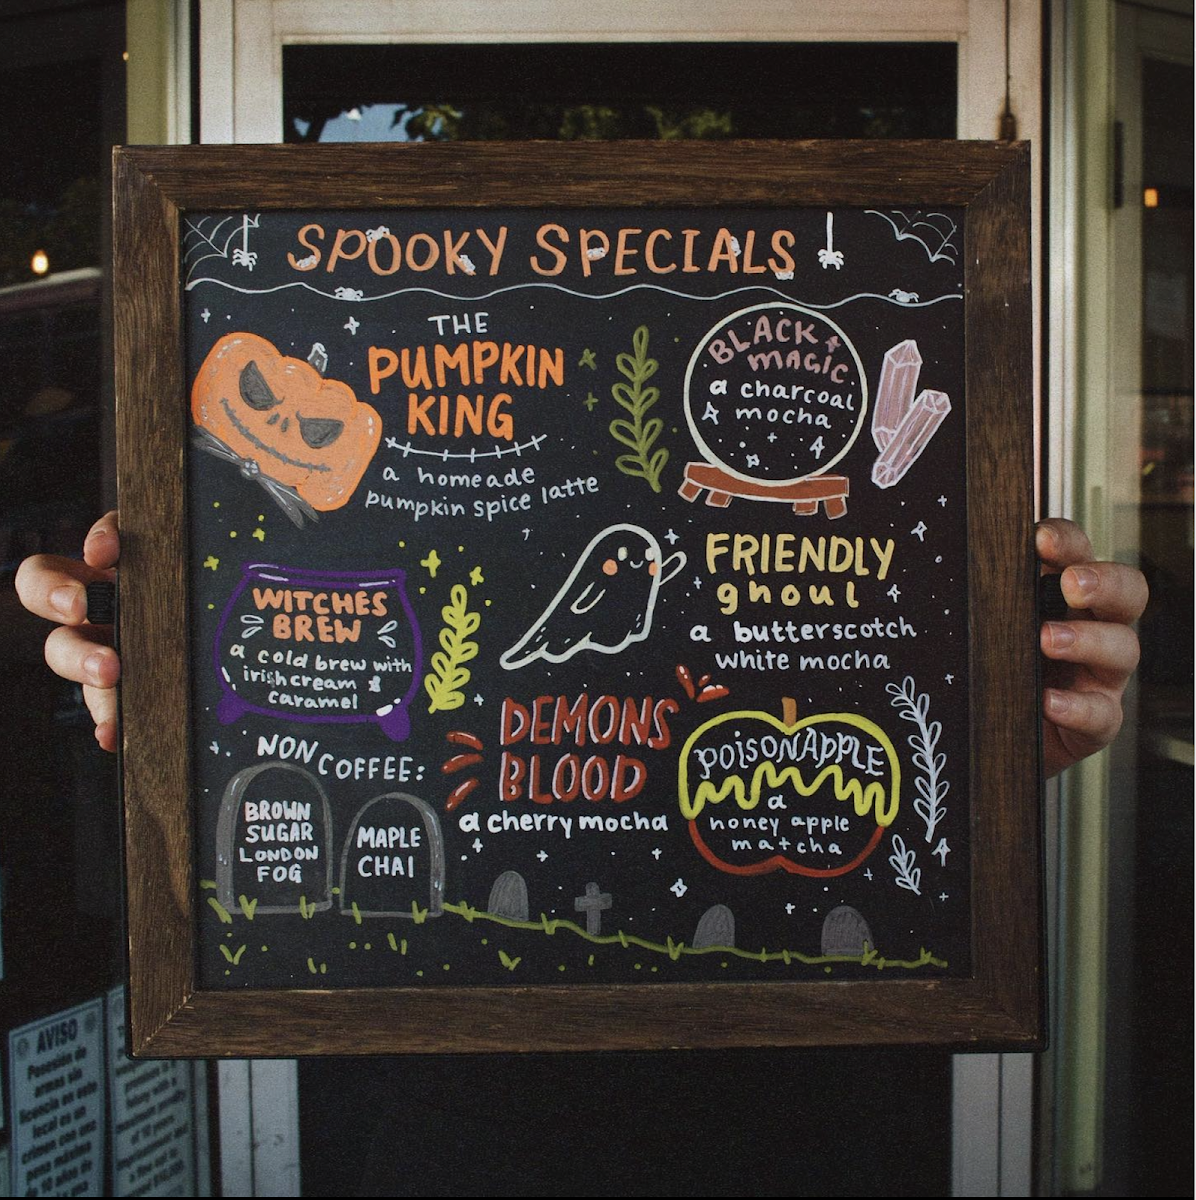 SPOOKY SPECIALS
THE
PUMPKIN
KING
a homeade
pumpkin spice latte
BLACK
MAGIC
a charcoal
mocha
WITCHES
BREW
a cold brew with
irish cream &
caramel
FRIENDLY
ghoul
a butterscotch
white mocha
DEMONS
BLOOD
a cherry mocha
POISON APPLE
a
honey apple
matcha
NON COFFEE:
BROWN
SUGAR
LONDON
FOG
MAPLE
CHAI
AVISO
Posesión de
armas sin
licencia en este
local es un
crimen con una
pena máxima
de 10 años de